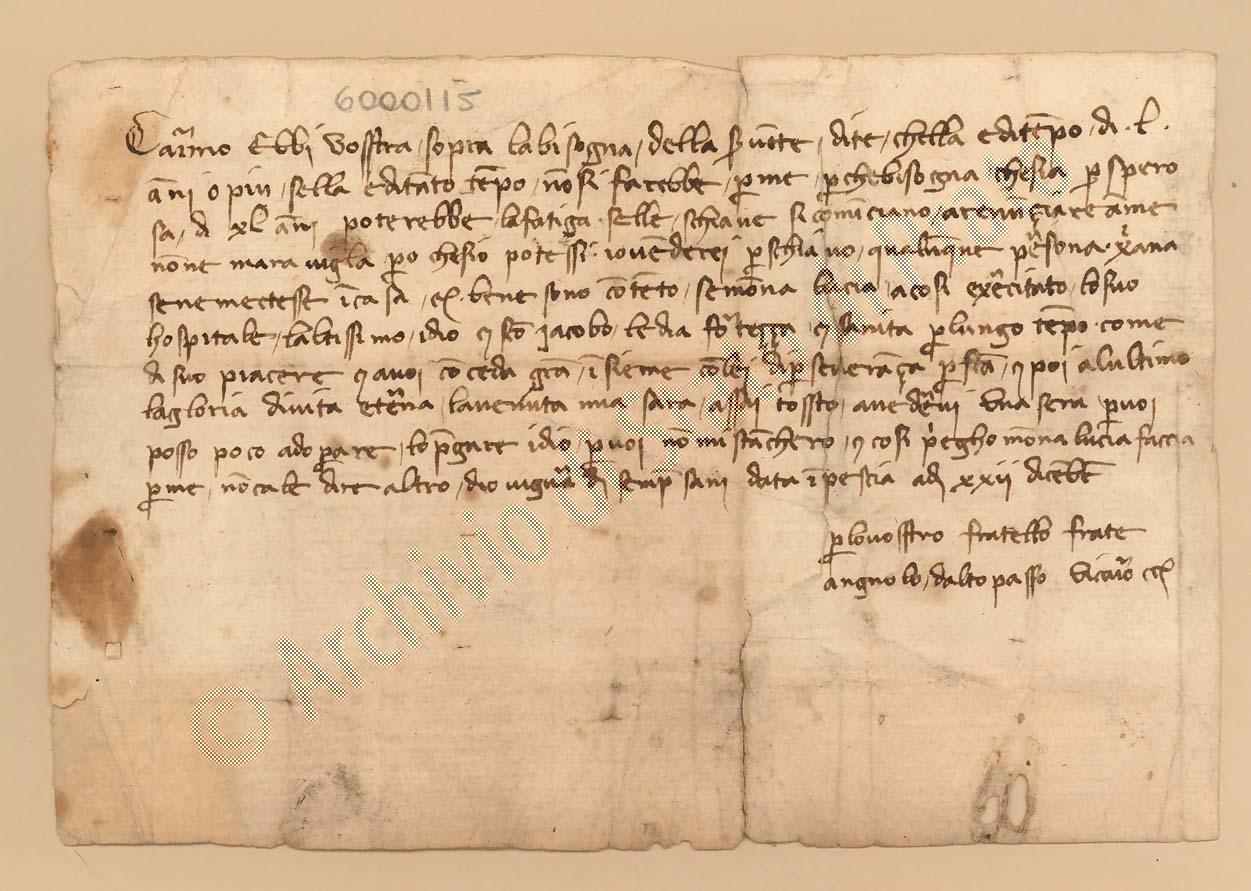 6000115
Car.mo Ebbi vosstra, sopra labisogna, della s̄vente, dite, chella edit̄epo, di .l.
āni opiu, sella edit̄ato t̄epo, nōsi farebbe, p̄ me, p̄chebisogna chesia p̄spero
sa, di xl āni poterebbe, lafatiga. selle, schiave si cominciano, arenu͞ciare ame
none maraviglia p̄o chesio potessi, iovenderei p̄schiavo, qualūque p̄sona. xāna
senemectesse ī casa, ec. bene sono cōtēto, semōna lucia, acosi exercitato, losuo
hospitale, laltissimo, idio et sc̄o Jacobo, ledia fortezza et sanita p̄lungo tēpo. come
di suo piacere et avoi cōceda grā, īsieme cōlei dip̄severāça p̄ fectā, et poi alultimo
lagloria divita etterna, lavenuta mia sara, assai tossto, avedervi una sera p̄ voi
posso poco adop̄are, lop̄gare idio, p̄voi nōmistāchero, et cosi p̄egho mōna lucia faccia
p̄me, nōcale dire altro, dio vi guardi semp̄ sani data ī pescia adi xxii dicēbr̄
p̄ lovosstro fratello frate
angnolo, daltopasso vicario ec.
© Archivio di Stato di Prato